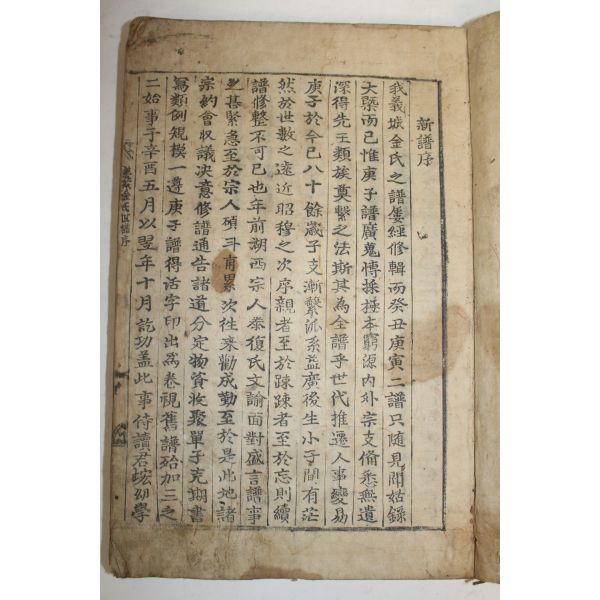 新譜序
我義城金氏之譜屢經修輯而癸丑庚寅二譜只隨見聞姑錄
大槩而已惟庚子譜廣蒐傳採極本窮源內外宗支備悉無遺
深得先王類族奠繫之法斯其為全譜乎世代推遷人事變易
庚子於今已八十餘歲子支漸繁派系益廣後生小子間有茫
然於世數之遠近昭穆之次序親者至於踈踈者至於忘則續
譜修整不可已也年前湖西宗人泰復氏文諭面對盛言譜事
之甚緊急至於宗人碩斗甫累次往来勸成勤至於是此地諸
宗約會収議决意修譜通告諸道分定物資收聚單子克期書
寫類例規模一遵庚子譜得活字印出為卷視舊譜殆加三之
二始事于辛酉五月以翌年十月訖功盖此事侍讀君 幼學
義城金氏世譜序